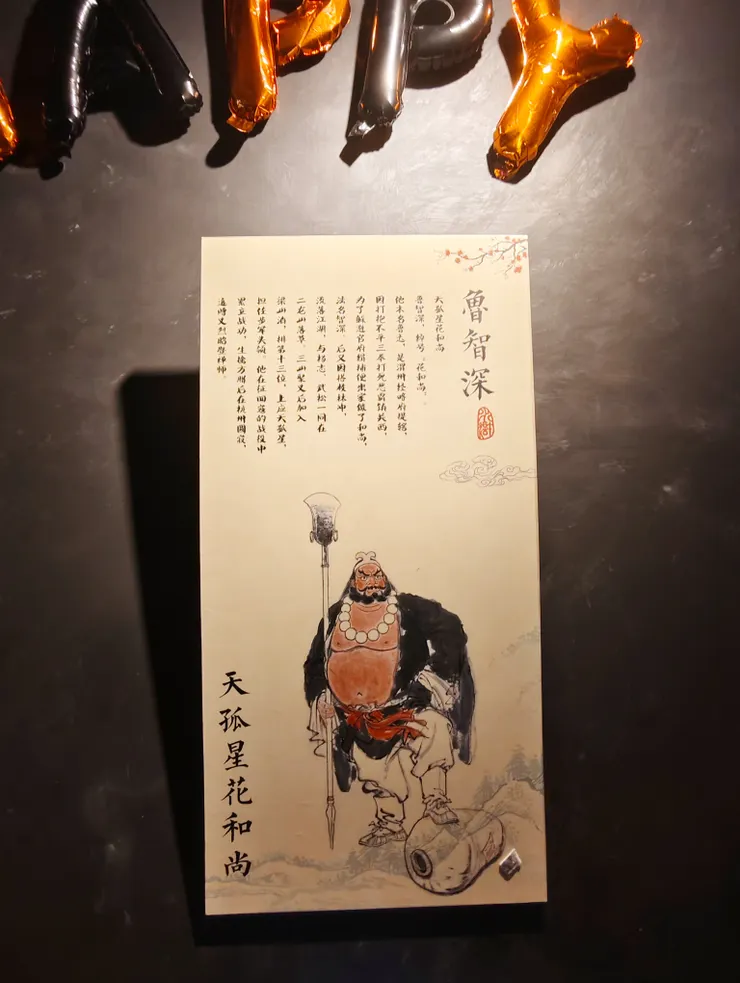 APPY
魯智深
水滸
天孤星花和尚
鲁智深，绰号：花和尚，
他本名鲁达，是渭州经略府提辖，
因打抱不平三拳打死恶霸镇关西，
为了躲避官府缉捕便出家做了和尚，
法名智深。后又因搭救林冲，
流落江湖，与杨志、武松一同在
二龙山落草。三山聚义后加入
梁山泊，排第十三位，上应天孤星，
担任步军头领。他在征四寇的战役中
累立战功，生擒方腊后在杭州圆寂，
追赠义烈昭暨禅师。
天孤星花和尚